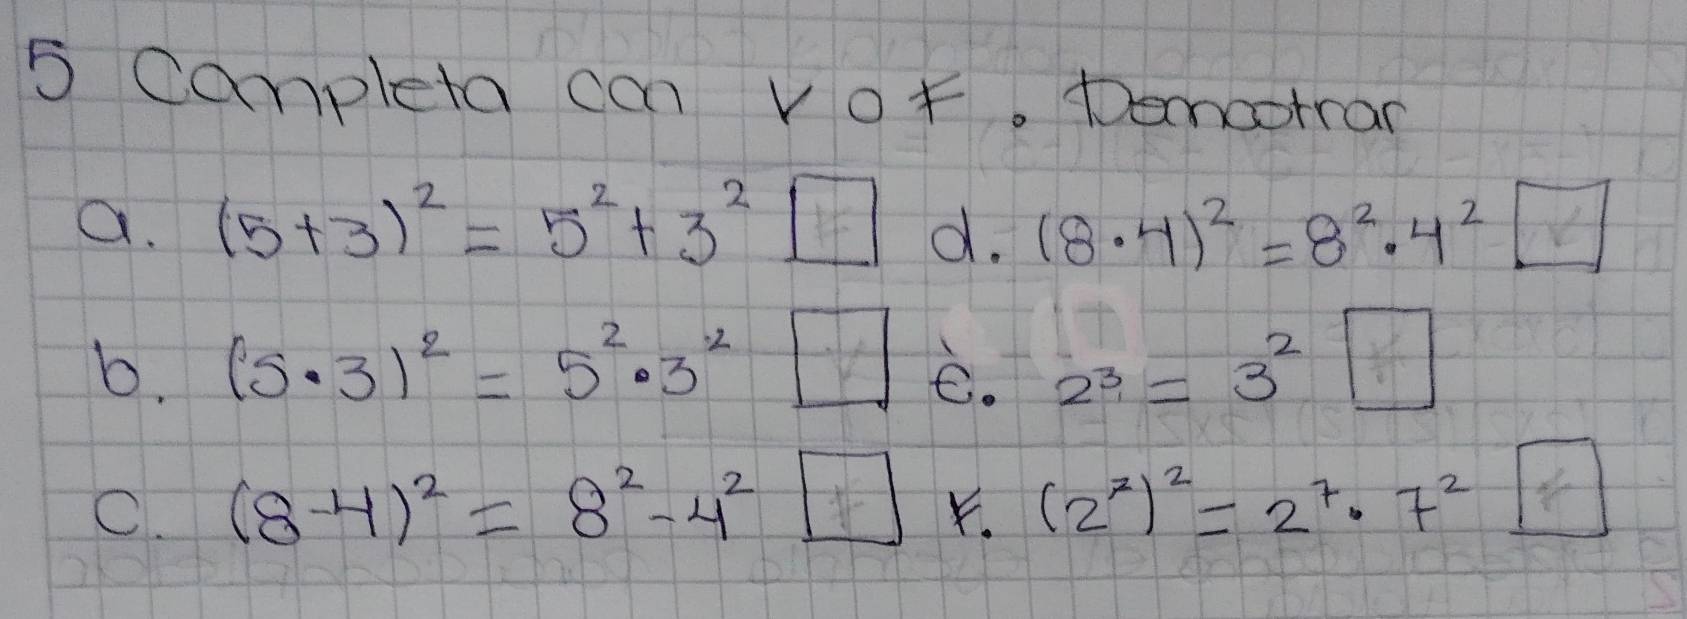 5 Completa con V o F. Demostrar
a. (5+3)² = 5² + 3² F d. (8·4)² = 8²·4² V
b. (5·3)² = 5²·3² V e. 2³ = 3² F
c. (8-4)² = 8² - 4² F f. (2⁷)² = 2⁷·7² F